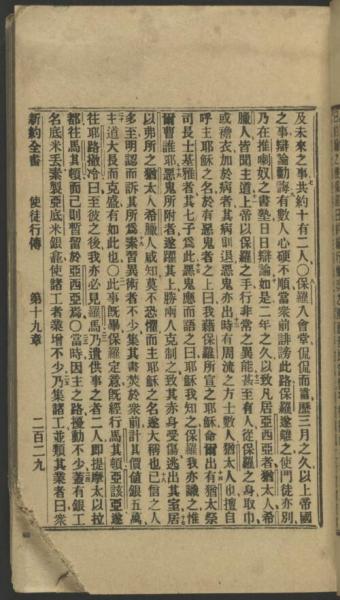 及未來之事共約十有二人〇保羅入會堂侃侃而論歷三月之久以上帝國
之事辯論勸誨有數人心硬不順當衆前誹謗此路保羅遂離之使門徒亦別
乃在推喇奴之書塾日日辯論如是二年之久以致凡居亞西亞者猶太人希
臘人皆聞主道上帝以保羅之手行非常之異能甚至有人從保羅之身取巾
或襜衣加於病者其病則退惡鬼亦出時有周流之方士數人猶太人也擅自
呼主耶穌之名於有惡鬼者之上曰我藉保羅所宣之耶穌命爾出有猶太祭
司長士基雅者其七子爲此惡鬼應而語之曰耶穌我知之保羅我亦識之惟
爾曹誰耶惡鬼所附者遂躍其上勝兩人克制之致其赤身受傷逃出其室居
以弗所之猶太人希臘人咸知莫不恐懼而主耶穌之名遂大稱也已信之人
多至明認而訴其所爲素習異術者不少集其書焚於衆前計其價値銀五萬
主道大長而克盛有如此也〇此事旣畢保羅定意旣經行馬其頓亞該亞遂
往耶路撒冷曰至彼之後我亦必見羅馬乃遣供事之者二人卽提摩太以拉
都往馬其頓而己則暫留於亞西亞焉〇當時因主之路擾動不少蓋有銀工
名底米丟製亞底米銀龕使諸工者業增不少乃集諸工並類其業者曰衆
新約全書 使徒行傳 第十九章 二百二九